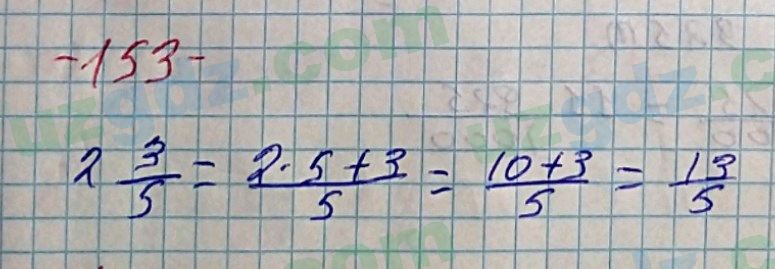 -153-
2 3/5 = (2·5+3)/5 = (10+3)/5 = 13/5
uzgdz.com
uzgdz.com